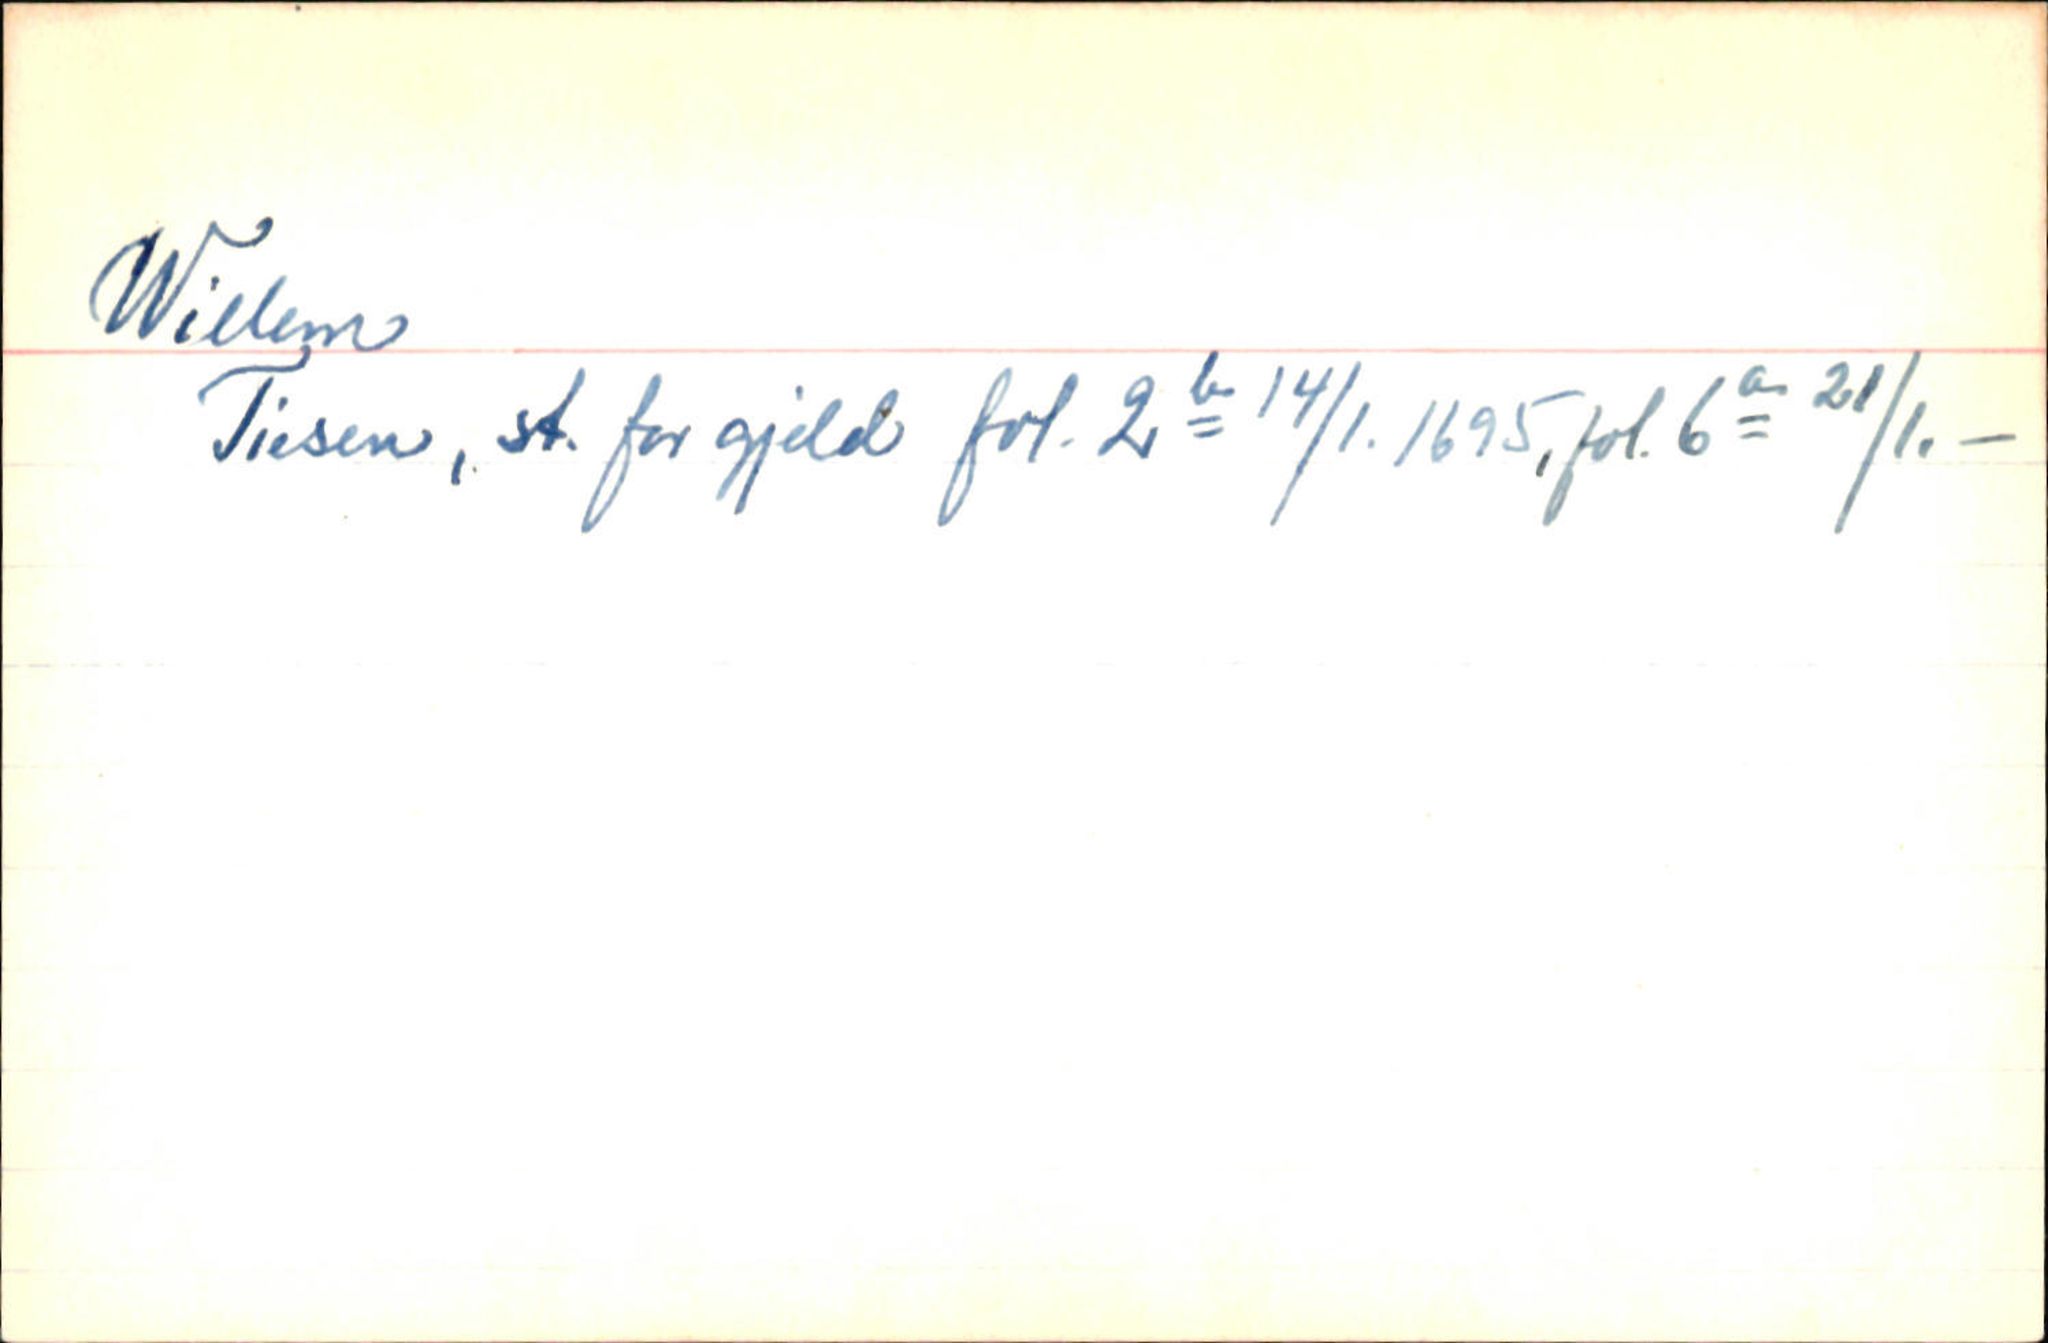 Willem
Tiesen, st. for gjeld fol. 2b 14/1. 1695, fol. 6a 21/1. —